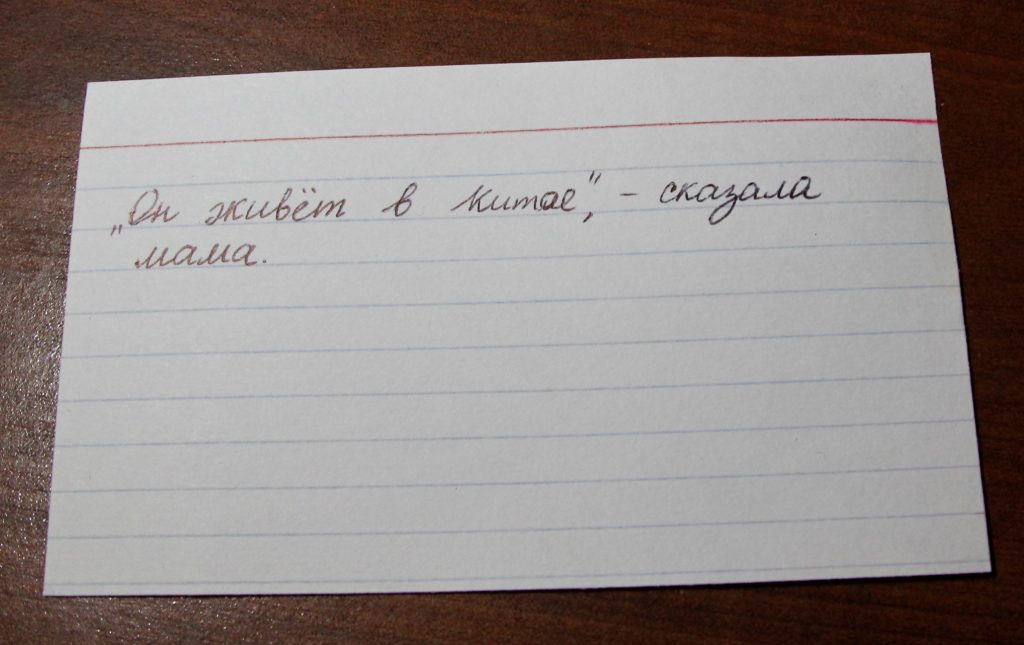 „Он живёт в Китае“, – сказала
мама.